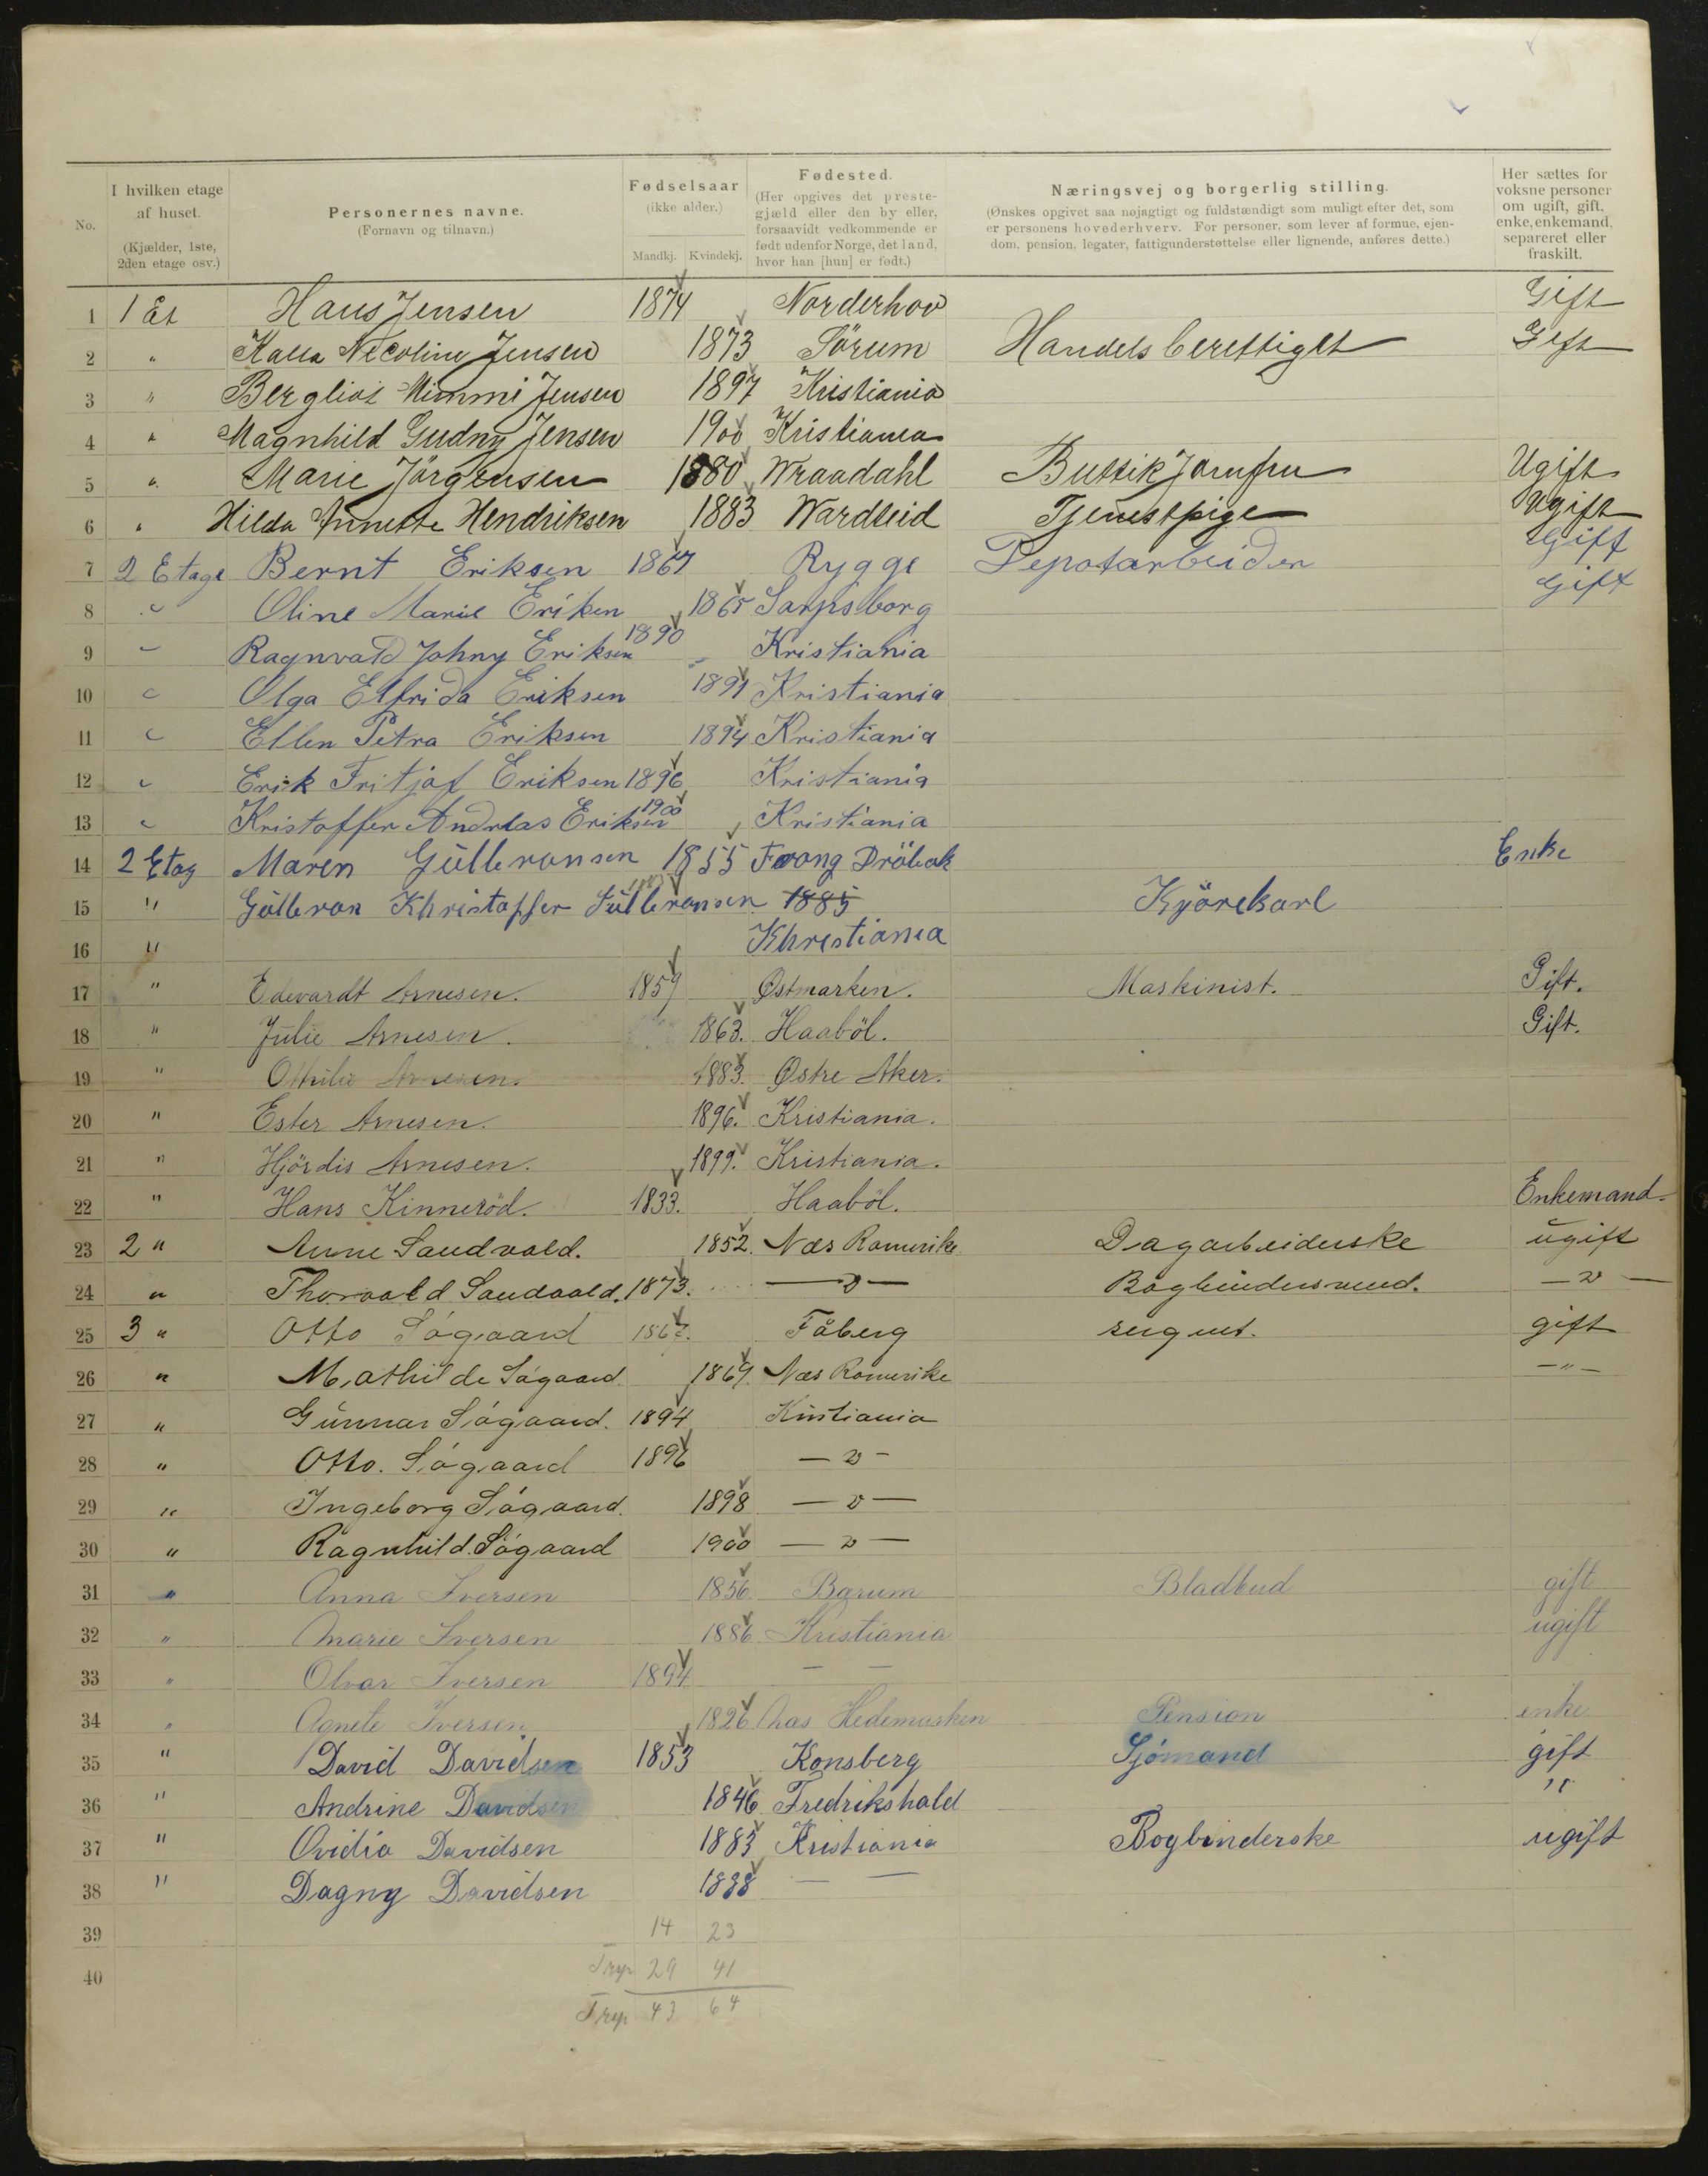 No.
I hvilken etage af huset. (Kjælder, 1ste, 2den etage osv.)
Personernes navne. (Fornavn og tilnavn.)
Fødselsaar (ikke alder.) Mandkj. Kvindekj.
Fødested. (Her opgives det prestegjæld eller den by eller, forsaavidt vedkommende er født udenfor Norge, det land, hvor han [hun] er født.)
Næringsvej og borgerlig stilling. (Ønskes opgivet saa nøjagtigt og fuldstændigt som muligt efter det, som er personens hovederhverv. For personer, som lever af formue, ejendom, pension, legater, fattigunderstøttelse eller lignende, anføres dette.)
Her sættes for voksne personer om ugift, gift, enke, enkemand, separeret eller fraskilt.
1 1 Et Hans Jensen 1874 Norderhov Gift
2 " Necoline Jensen 1873 Sörum Handelsberettiget Gift
3 " Bergliot Mimmi Jensen 1897 Kristiania
4 " Magnhild Gudny Jensen 1900 Kristiania
5 " Marie Jörgensen 1880 Wraadahl Butikjomfru Ugift
6 " Hilda Annette Hendriksen 1883 Tjenestpige Ugift
7 2 Etage Bernt Eriksen 1867 Rygge Depotarbeider Gift
8 " Oline Marie Eriken 1865 Sarpsborg Gift
9 " Ragnvald Johny Eriksen 1890 Kristiania
10 " Olga Elfrida Eriksen 1891 Kristiania
11 " Ellen Petra Eriksen 1894 Kristiania
12 " Erik Fritjof Eriksen 1896 Kristiania
13 " Kristoffer Andreas Eriksen 1900 Kristiania
14 2 Etag Maren Gulbransen 1855 Dröbak Enke
15 " Gulbran Khristoffer Gulbransen 1885 Kjörekarl
16 " Khrestiania
17 " Edevardt Arnesen. 1859 Østmarken. Maskinist. Gift.
18 " Julie Arnesen. 1863. Haaböl. Gift.
19 " Othilie Arnesen. 1883. Østre Aker.
20 " Ester Arnesen. 1896. Kristiania.
21 " Hjördis Arnesen. 1899. Kristiania.
22 " Hans Kinneröd. 1833. Haaböl. Enkemand.
23 2 " Anne Sandvold. 1852. Næs Romerike Dagarbeiderske ugift
24 " Thorvald Sandvold. 1873. — " — Bogbindersvend. — " —
25 3 " Otto Sögaard 1867. Fåberg gift
26 " Mathilde Sögaard. 1869. Næs Romerike — " —
27 " Gunnar Sögaard. 1894 Kristiania
28 " Otto. Sögaard 1896 — " —
29 " Ingeborg Sögaard. 1898 — " —
30 " Ragnhild. Sögaard 1900 — " —
31 " Anna Iversen 1856 Barum Bladbud gift
32 " Marie Iversen 1886 Kristiania ugift
33 " Olvar Iversen 1894 — —
34 " Agnete Iversen 1826 Næs Hedemarken Pension enke
35 " David Davidsen 1853 Konsberg Sjömand gift
36 " Andrine Davidsen 1846 Fredrikshald "
37 " Ovidia Davidsen 1883 Kristiania Bogbinderske ugift
38 " Dagny Davidsen 1888 — —
39 14 23
40 29 41
43 64